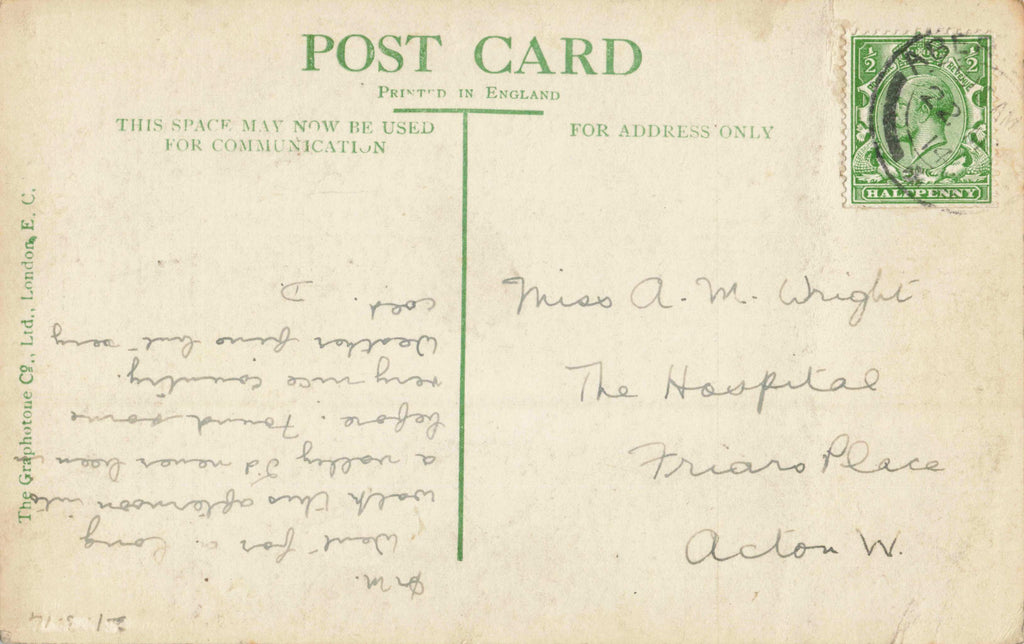 POST CARD
PRINTED IN ENGLAND
THIS SPACE MAY NOW BE USED
FOR COMMUNICATION
FOR ADDRESS ONLY
½ ½
HALFPENNY
The Graphotone Cº., Ltd., London, E. C.
21.3.14
Went for a long
walk this afternoon into
a valley I'd never been in
before. Found some
very nice country.
Weather fine but very
cold.
D.
Miss A. M. Wright
The Hospital
Friars Place
Acton W.